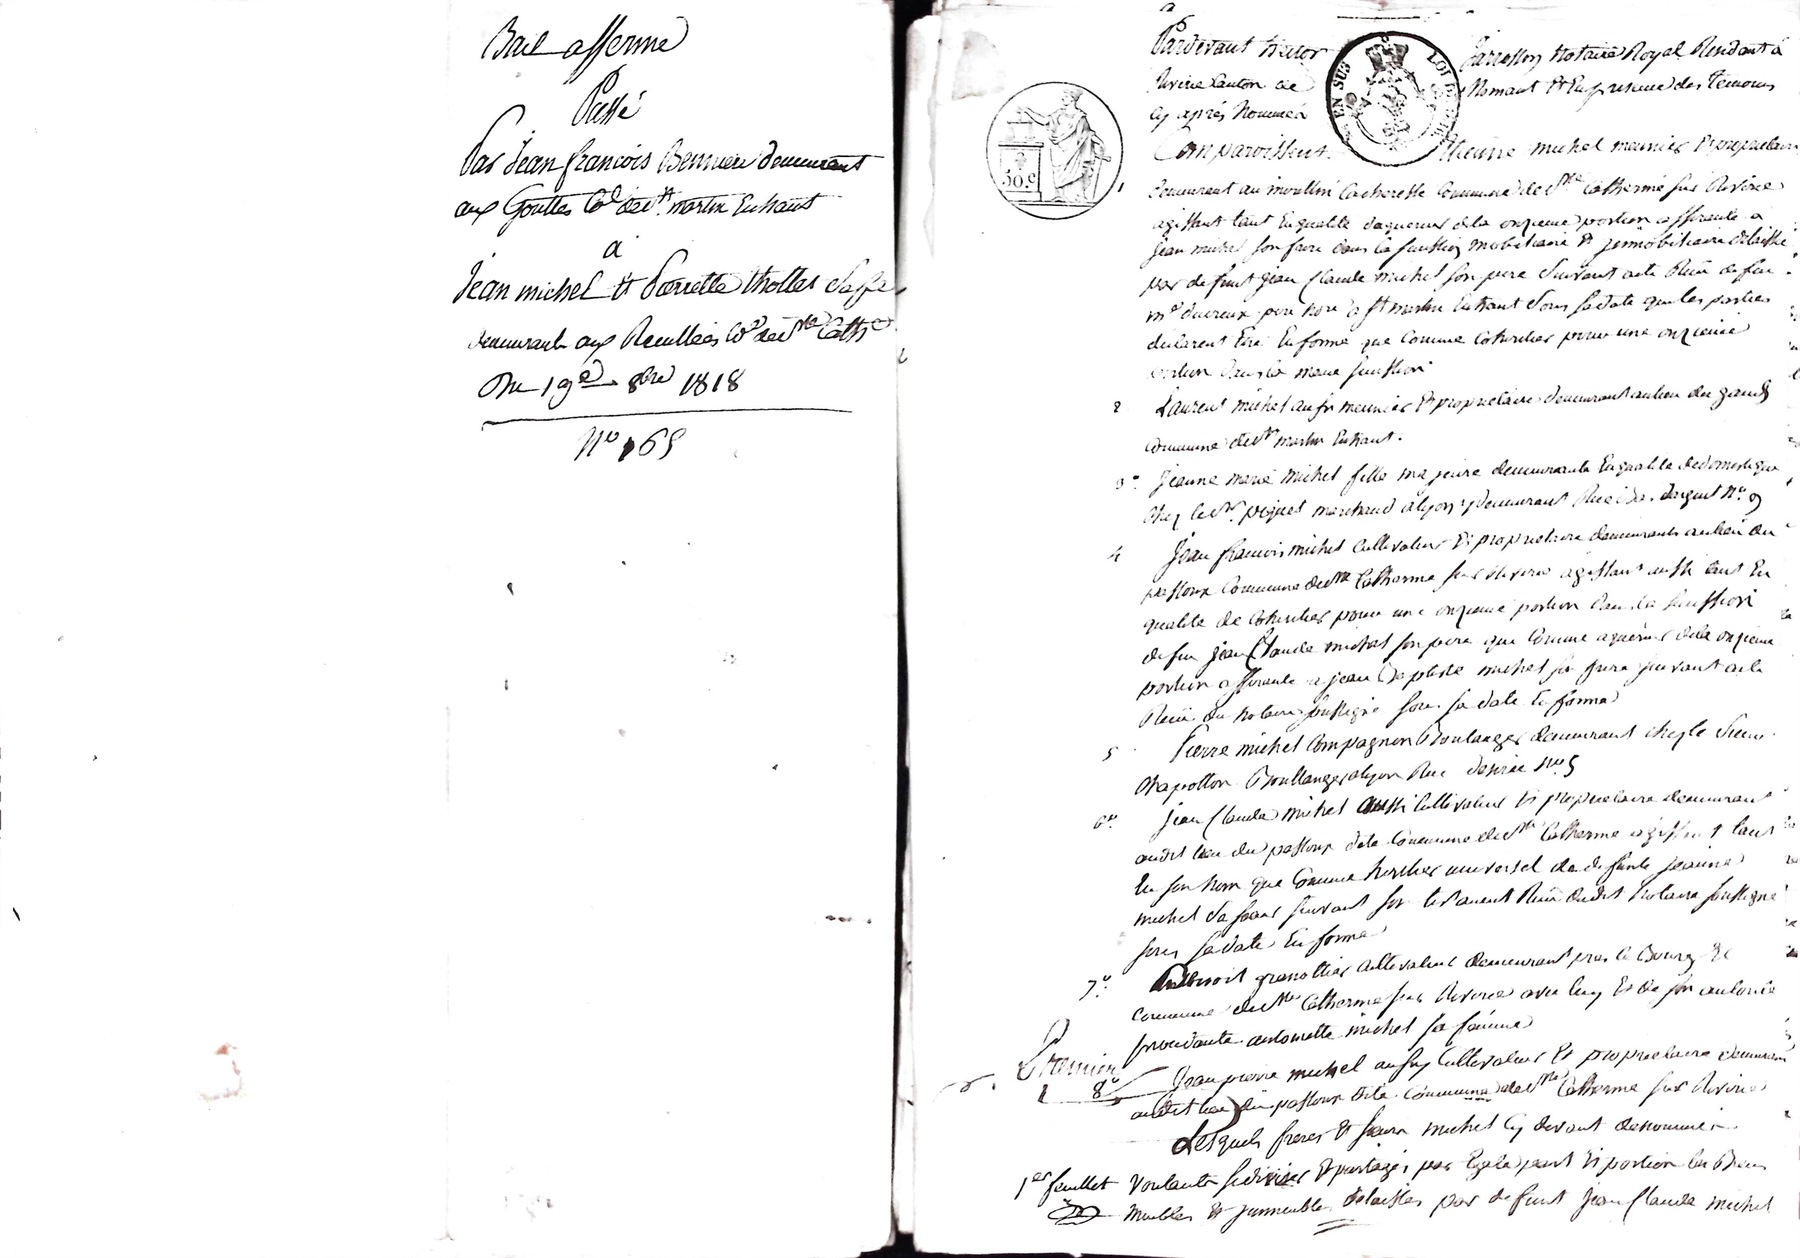 Bail afferme
Passé
Par Jean francois Benniere demeurant
aux Gouttes Co.e de St. martin Enhaut
à
Jean michel Et Pierrette thollet Sa fe
demeurants aux Reculles Co.e de Ste Cathe
Du 19e 8bre 1818
No 165
Pardevant Notaire Royal Residant à
Riverie Canton de Mornant Et En presence des Temoins
Cy après Nommés
Comparoissent Etienne michel meunier Et proprietaire
1 demeurant au moulin Commune de Ste Catherine sur Riverie
agissant tant En qualité daquereur de la onzieme portion afferante a
jean michel son frere dans la succession mobiliaire Et jmmobiliaire delaissée
par defunt jean Claude michel son pere Suivant acte Recu de feu
me ducreux pere nore a St martin Enhaut Sous sa date que les parties
declarent Etre En forme que Comme Coheritier pour une onzieme
portion dans la meme succession
2 Laurent michel aussy meunier Et proprietaire demeurant au lieu du
Commune de St martin Enhaut.
3o. Jeanne marie michel fille majeure demeurante En qualité de domestique
chez le Sr. marchand a lyon y demeurant Rue No. 9
4 Jean francois michel Cultivateur Et proprietaire demeurants au lieu du
passoux Commune de Ste Catherine sur Riverie agissant aussi tant En
qualité de Coheritier pour une onzieme portion dans la succession
de feu jean Claude michel son pere que Comme aquereur de la onzieme
portion afferante a jean Baptiste michel son frere suivant acte
Recu du notaire soussigné sous sa date En forme
5 Pierre michel Compagnon Boulanger demeurant chez le Sieur
Boullanger a lyon Rue No. 5
6o. jean Claude michel aussi Cultivateur Et proprietaire demeurant
audit lieu du passoux dite Commune de Ste Catherine agissant tant
En son nom que Comme heritier universel de defunte jeanne
michel Sa soeur suivant son testament Recu dudit notaire soussigné
sous sa date En forme
7o. Benoit grenottier Cultivateur demeurant pres le Bourg Et
Commune de Ste Catherine sur Riverie avec luy Et de son autorité
procedante antoinette michel sa femme
Premier
8o Jean pierre michel aussy Cultivateur Et proprietaire demeurant
audit lieu du passoux dite Commune de Ste Catherine sur Riverie
Lesquels freres Et soeurs michel Cy devant denommés
1er feuillet voulants se diviser Et partager par Egale part Et portion les Biens
Meubles Et jmmeubles delaissés par defunt jean Claude michel
50.c